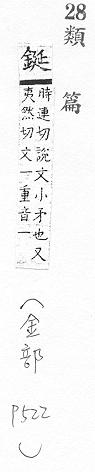 28類篇
鋋
時連切說文小矛也又
夷然切文一重音一
(金部 P522)